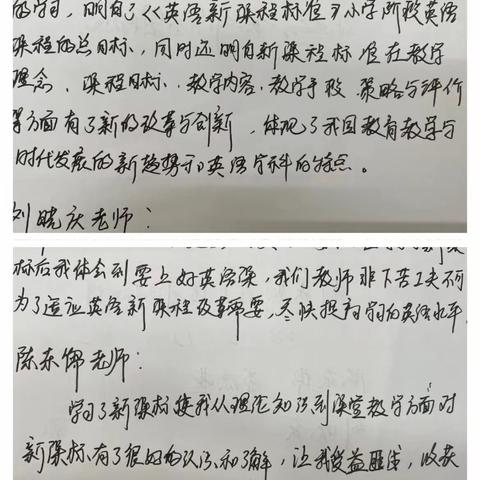 的学习，明白了《英语新课程标准》小学阶段英语
课程的总目标，同时还明白新课程标准在教学
理念、课程目标、教学内容、教学手段、策略与评价
等方面有了新的改革与创新，体现了我国教育教学与
时代发展的新趋势和英语学科的特点。
刘晓庆老师：
标后我体会到要上好英语课，我们教师非下苦工夫不可
为了适应英语新课程改革需要，尽快提高学习的英语水平
陈东伟老师：
学习了新课标使我从理论知识到课堂教学方面对
新课标有了很好的认识和了解，让我受益匪浅，收获